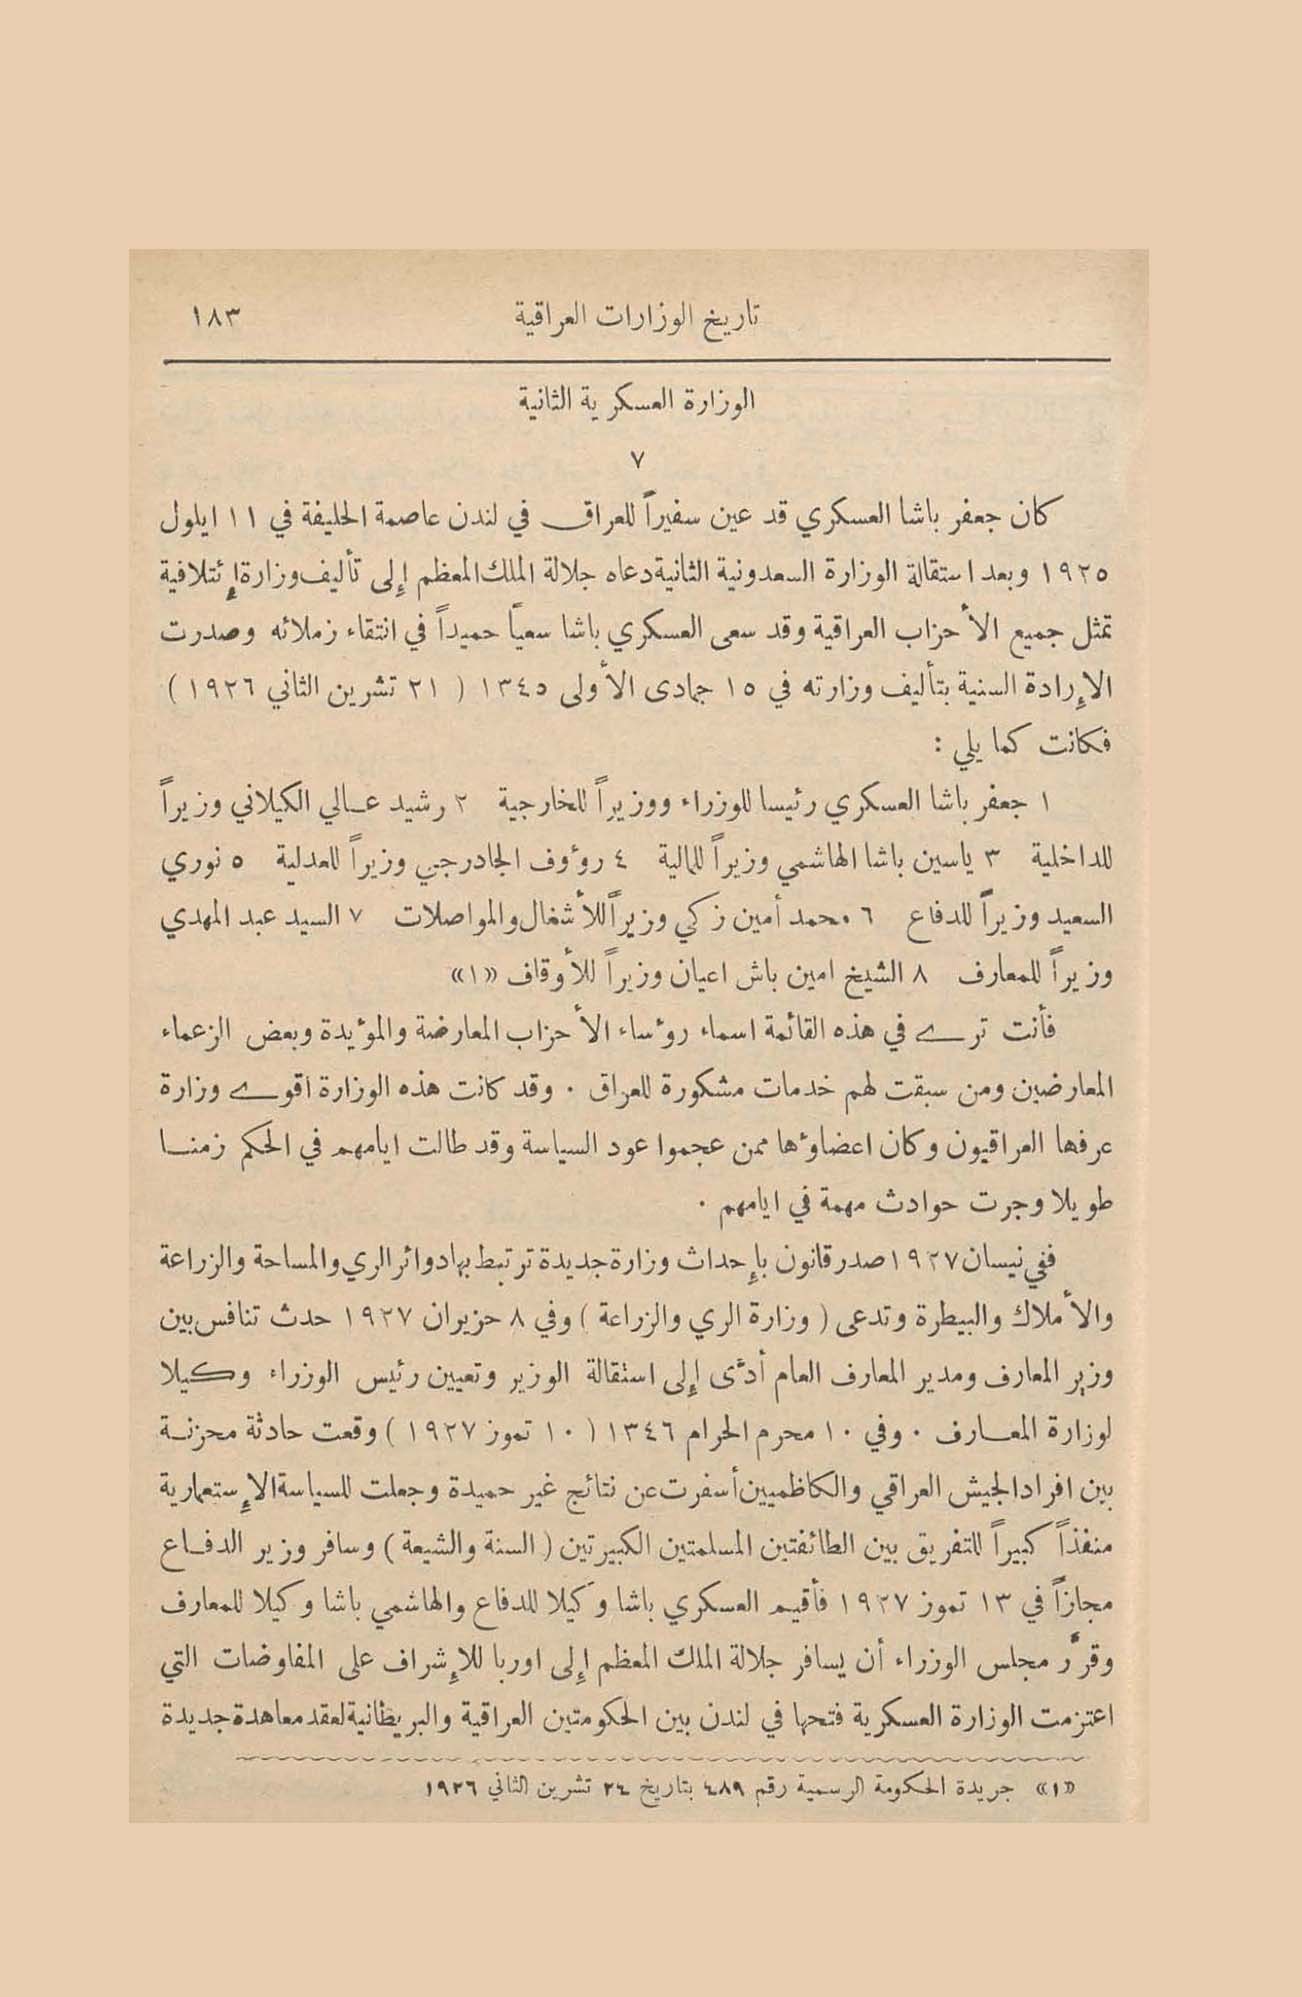 تاريخ الوزارات العراقية ١٨٣
الوزارة العسكرية الثانية
٧
كان جعفر باشا العسكري قد عين سفيراً للعراق في لندن عاصمة الحليفة في ١١ ايلول
١٩٢٥ وبعد استقالة الوزارة السعدونية الثانية دعاه جلالة الملك المعظم إلى تأليف وزارة إئتلافية
تمثل جميع الأحزاب العراقية وقد سعى العسكري باشا سعياً حميداً في انتقاء زملائه وصدرت
الإرادة السنية بتأليف وزارته في ١٥ جمادى الأولى ١٣٤٥ ( ٢١ تشرين الثاني ١٩٢٦ )
فكانت كما يلي :
١ جعفر باشا العسكري رئيسا للوزراء ووزيراً للخارجية ٢ رشيد عالي الكيلاني وزيراً
للداخلية ٣ ياسين باشا الهاشمي وزيراً للمالية ٤ روٴوف الجادرجي وزيراً للعدلية ٥ نوري
السعيد وزيراً للدفاع ٦ محمد أمين زكي وزيراً للأشغال والمواصلات ٧ السيد عبد المهدي
وزيراً للمعارف ٨ الشيخ امين باش اعيان وزيراً للأوقاف «١»
فأنت ترے في هذه القائمة اسماء روٴساء الأحزاب المعارضة والموٴيدة وبعض الزعماء
المعارضين ومن سبقت لهم خدمات مشكورة للعراق . وقد كانت هذه الوزارة اقوے وزارة
عرفها العراقيون وكان اعضاوٴها ممن عجموا عود السياسة وقد طالت ايامهم في الحكم زمنا
طويلا وجرت حوادث مهمة في ايامهم .
ففي نيسان ١٩٢٧ صدر قانون بإحداث وزارة جديدة ترتبط بها دوائر الري والمساحة والزراعة
والأملاك والبيطرة وتدعى ( وزارة الري والزراعة ) وفي ٨ حزيران ١٩٢٧ حدث تنافس بين
وزير المعارف ومدير المعارف العام أدَّى إلى استقالة الوزير وتعيين رئيس الوزراء وكيلا
لوزارة المعارف . وفي ١٠ محرم الحرام ١٣٤٦ ( ١٠ تموز ١٩٢٧ ) وقعت حادثة محزنة
بين افراد الجيش العراقي والكاظميين أسفرت عن نتائج غير حميدة وجعلت للسياسة الإستعمارية
منفذاً كبيراً للتفريق بين الطائفتين المسلمتين الكبيرتين ( السنة والشيعة ) وسافر وزير الدفاع
مجازاً في ١٣ تموز ١٩٢٧ فأقيم العسكري باشا وكيلا للدفاع والهاشمي باشا وكيلا للمعارف
وقرَّر مجلس الوزراء أن يسافر جلالة الملك المعظم إلى اوربا للإشراف على المفاوضات التي
اعتزمت الوزارة العسكرية فتحها في لندن بين الحكومتين العراقية والبريطانية لعقد معاهدة جديدة
«١» جريدة الحكومة الرسمية رقم ٤٨٩ بتاريخ ٢٤ تشرين الثاني ١٩٢٦